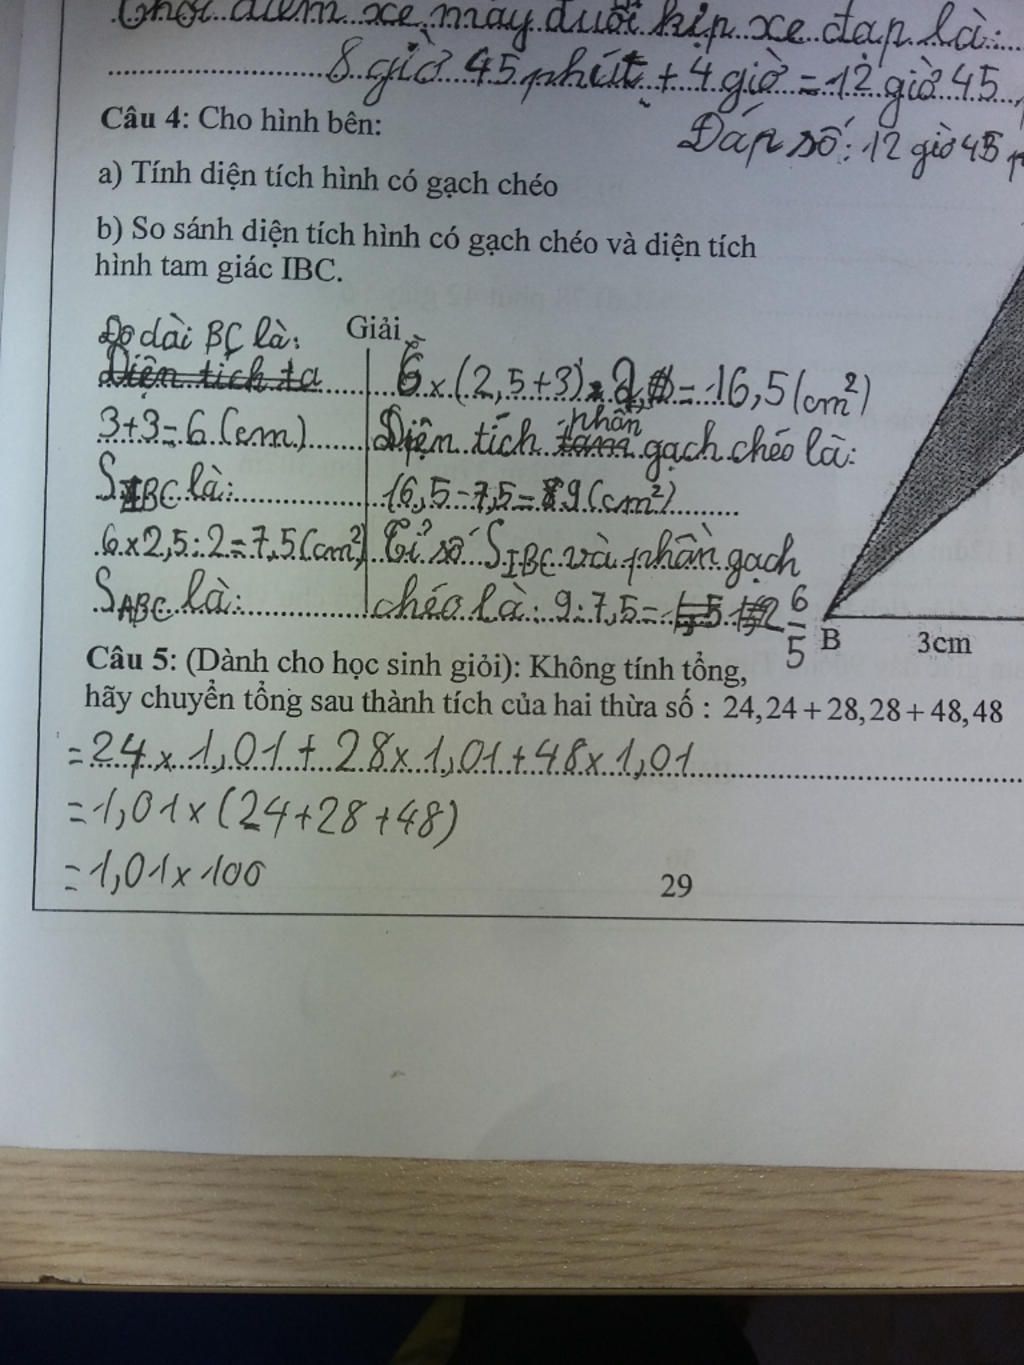 Thời điểm xe máy đuổi kịp xe đạp là:
8 giờ 45 phút + 4 giờ = 12 giờ 45
Đáp số: 12 giờ 45 p
Câu 4: Cho hình bên:
a) Tính diện tích hình có gạch chéo
b) So sánh diện tích hình có gạch chéo và diện tích
hình tam giác IBC.
Giải
Độ dài BC là:
3+3=6 (cm)
SIBC là:
6×2,5:2=7,5(cm²)
SABC là:
6×(2,5+3):2=16,5(cm²)
Diện tích phần gạch chéo là:
16,5-7,5=9(cm²)
Tỉ số SIBC và phần gạch
chéo là: 9:7,5= 6/5
B 3cm
Câu 5: (Dành cho học sinh giỏi): Không tính tổng,
hãy chuyển tổng sau thành tích của hai thừa số : 24,24 + 28,28 + 48,48
=24×1,01+28×1,01+48×1,01
=1,01×(24+28+48)
=1,01×100
29